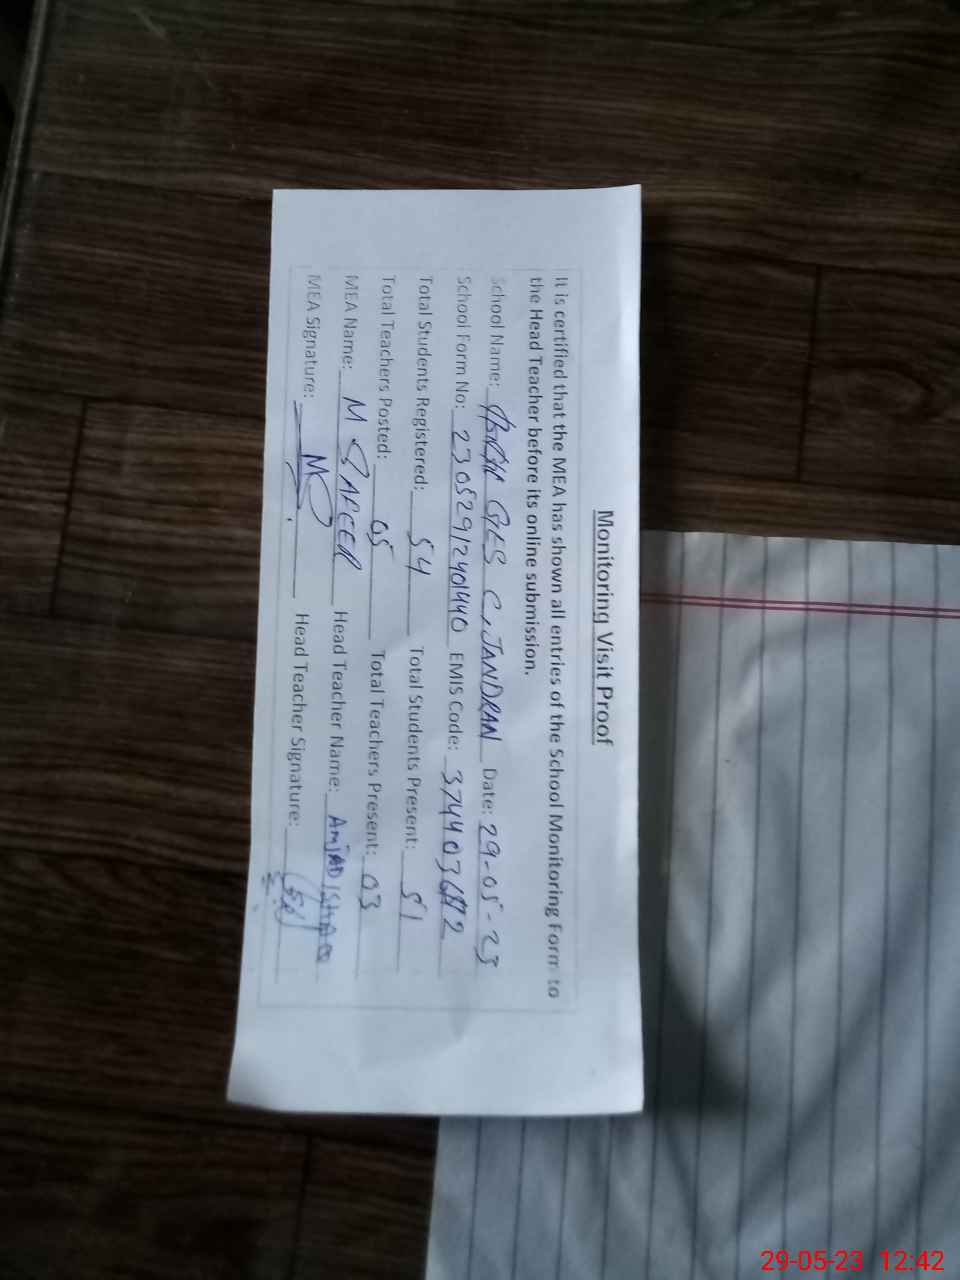 Monitoring Visit Proof
It is certified that the MEA has shown all entries of the School Monitoring Form to
the Head Teacher before its online submission.
School Name: GES C.JANDRAN Date: 29-05-23
School Form No: 23052912401440 EMIS Code:
Total Students Registered: 54 Total Students Present: 51
Total Teachers Posted: 05 Total Teachers Present: 03
MEA Name: M SAFEER Head Teacher Name: AmjAD ISHAQ
MEA Signature: Head Teacher Signature:
29-05-23 12:42